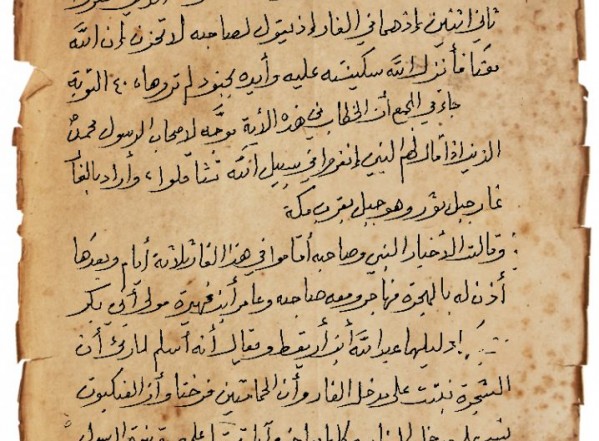 ثاني اثنين إذ هما في الغار إذ يقول لصاحبه لا تحزن إن الله
معنا فأنزل الله سكينته عليه وأيده بجنود لم تروها، ٤٠ التوبة
جاء في المجمع أن الخطاب في هذه الأية موجه لاصحاب الرسول محمد
الذين إذا قال لهم النبي إنفروا في سبيل الله تثاقلوا، وأراد بالغار
غار جبل ثور وهو جبل بقرب مكة
وقالت الأخبار النبي وصاحبه أقاموا في هذا الغار ثلاثة أيام وبعدها
أذن له بالهجرة فهاجر ومعه صاحبه وعامر أبن فهيرة مولى أبي بكر
دليلهما عبد الله أبن أريقط ويقال أنه أسلم لما رئ أن
الشجرة نبتت على مدخل الغار وأن الحمامتين فرختا وأن العنكبوت
على